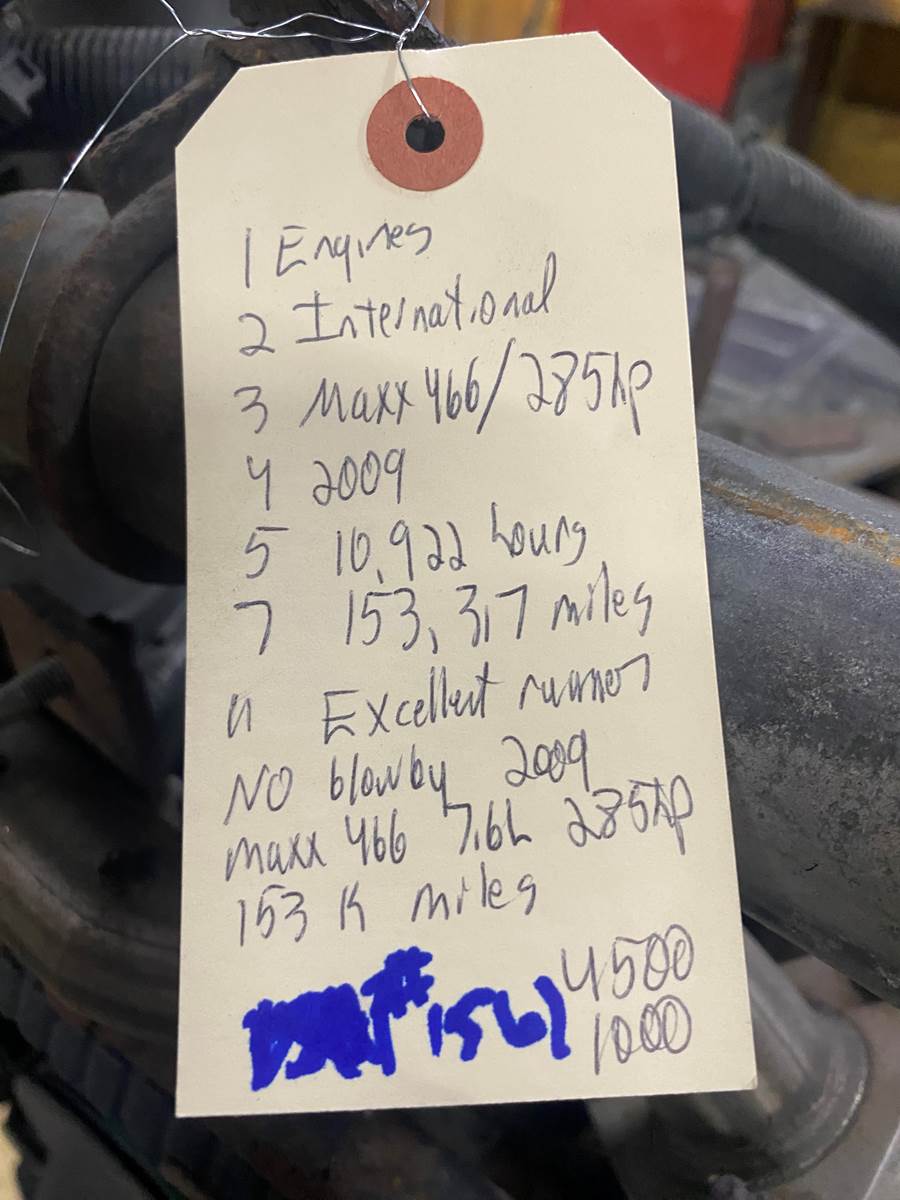 1 Engines
2 International
3 Maxx 466/285hp
4 2009
5 10,922 hours
7 153,317 miles
11 Excellent runner
NO blowby 2009
maxx 466 7.6L 285hp
153 K miles
4500
# 1561
1000